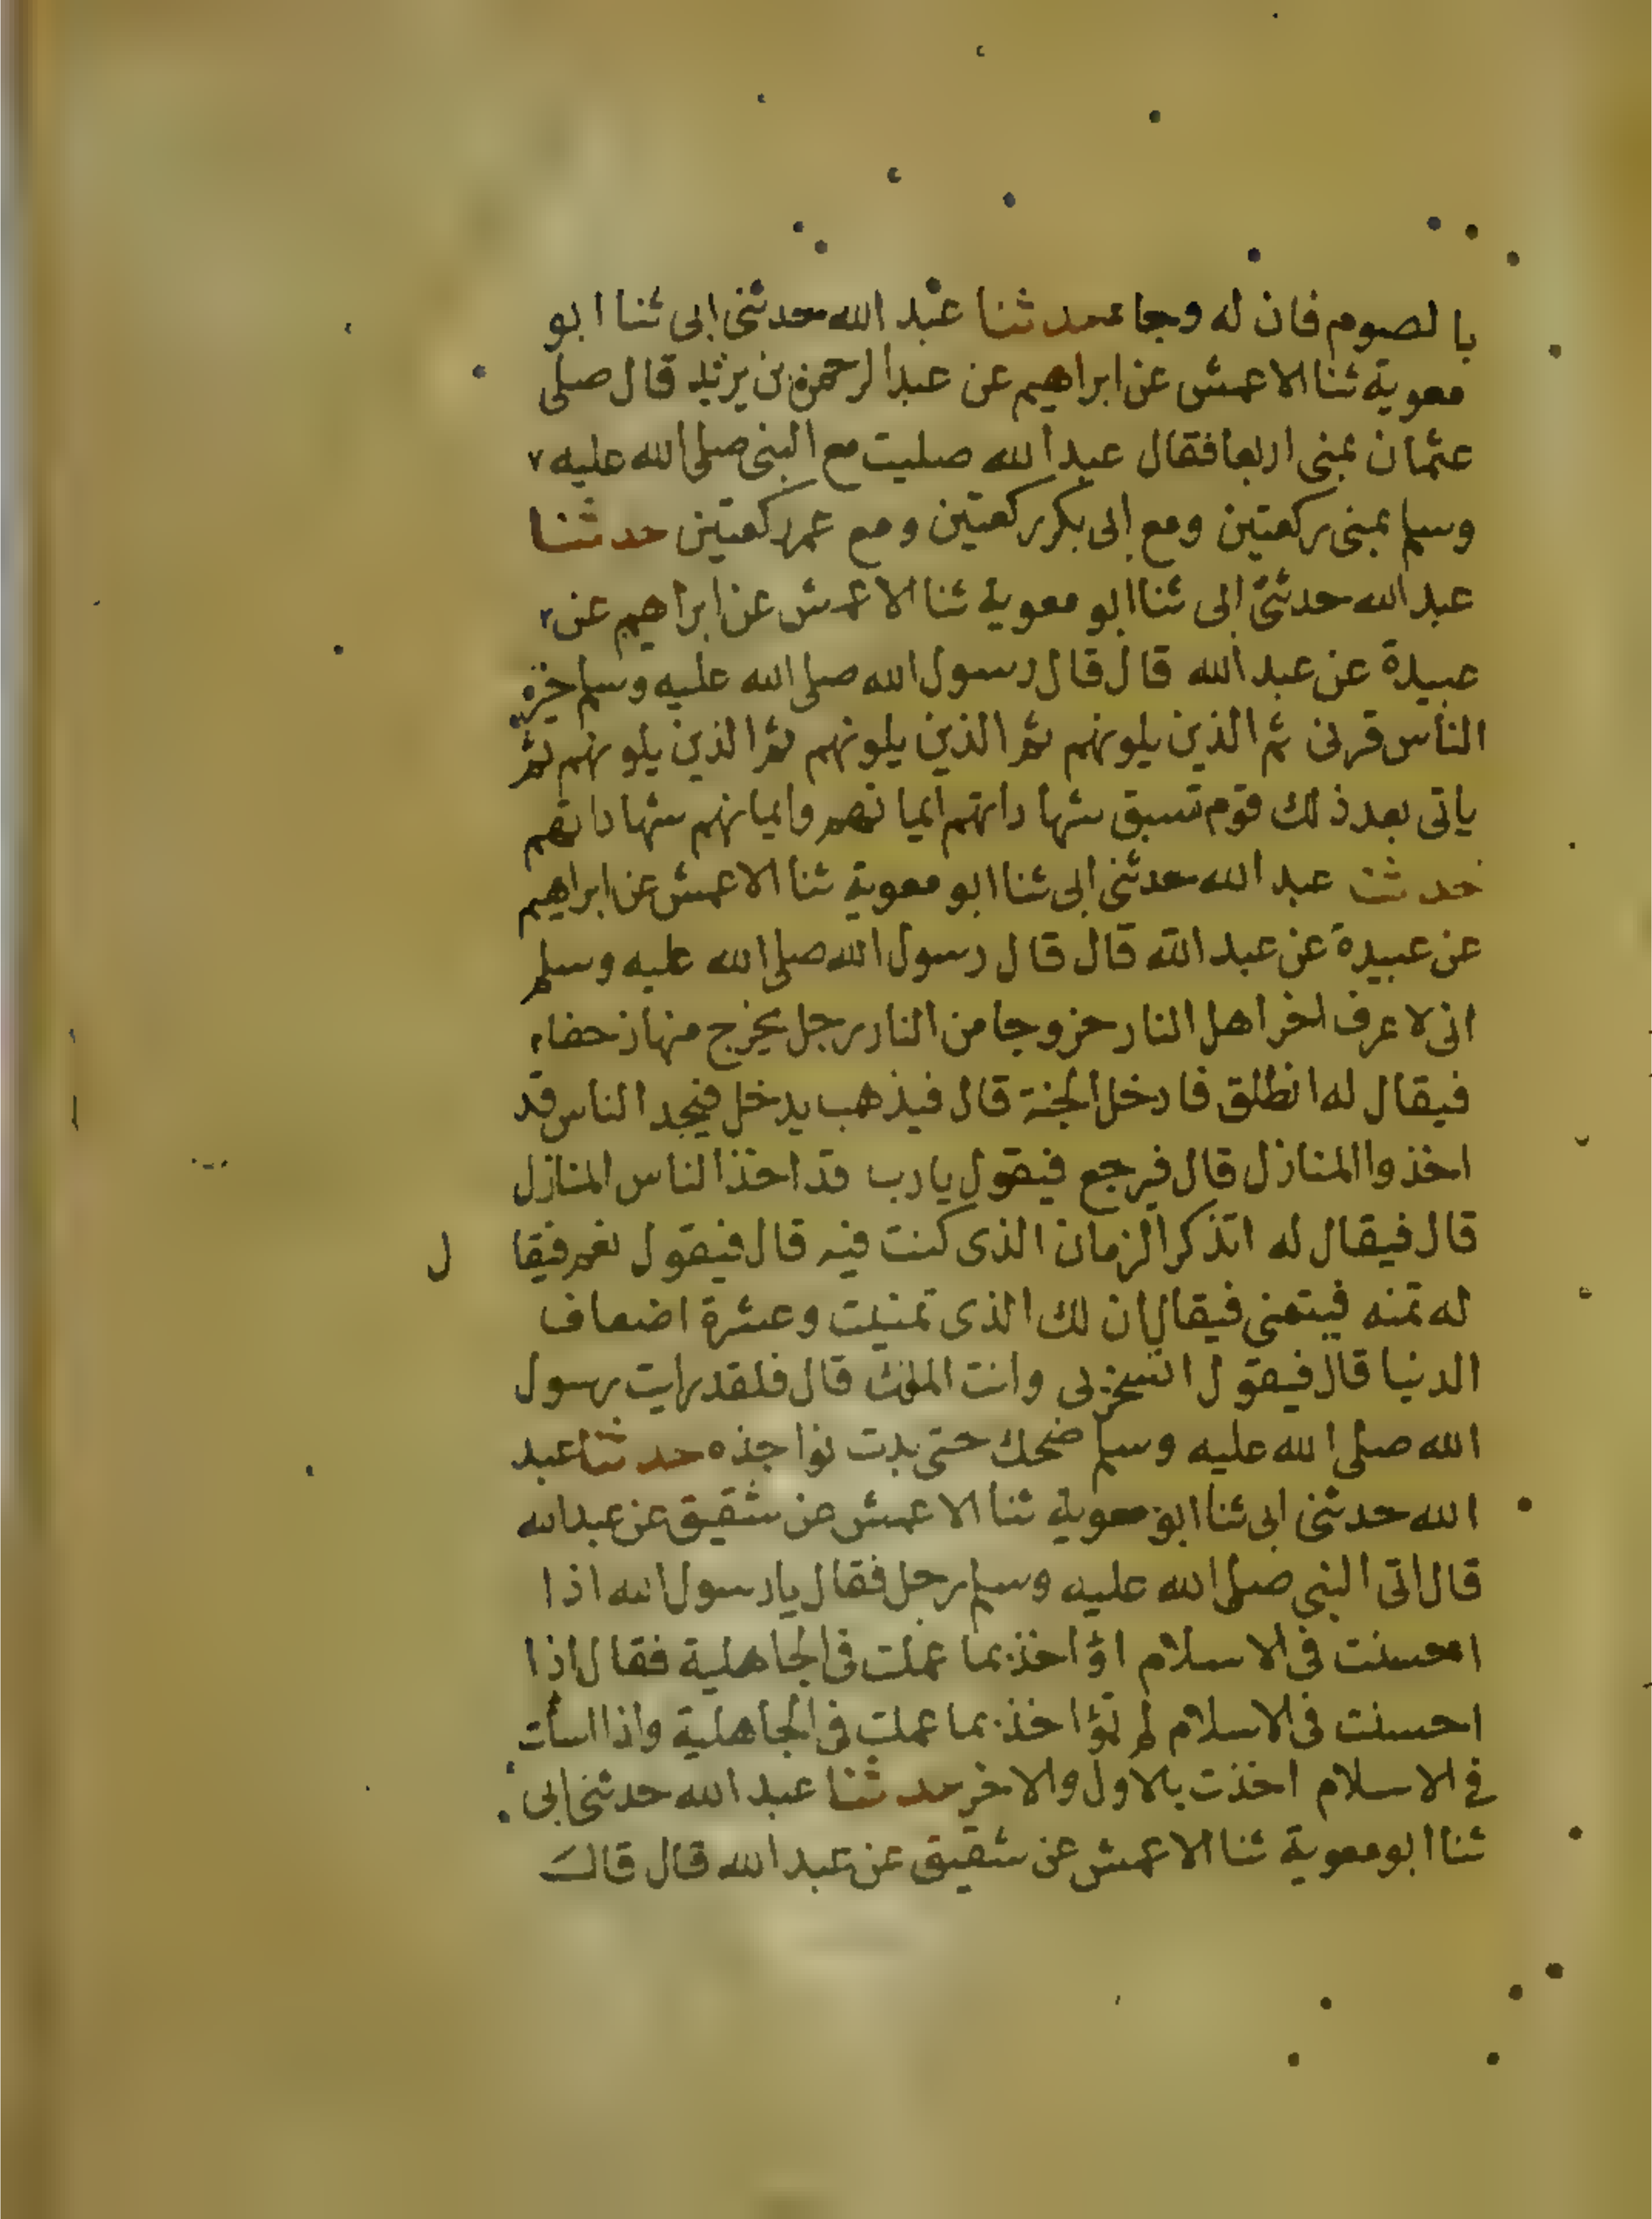 بالصوم فان له وجا حدثنا عبد الله حدثنى ابى ثنا ابو
معوية ثنا الاعمش عن ابراهيم عن عبد الرحمن بن يزيد قال صلى
عثمان بمنى اربعا فقال عبد الله صليت مع النبى صلى الله عليه
وسلم بمنى ركعتين ومع ابى بكر ركعتين ومع عمر ركعتين حدثنا
عبد الله حدثنى ابى ثنا ابو معوية ثنا الاعمش عن ابراهيم عن
عبيدة عن عبد الله قال قال رسول الله صلى الله عليه وسلم خير
الناس قرنى ثم الذين يلونهم ثم الذين يلونهم ثم الذين يلونهم ثم
ياتى بعد ذلك قوم تسبق شهاداتهم ايمانهم وايمانهم شهاداتهم
حدثنا عبد الله حدثنى ابى ثنا ابو معوية ثنا الاعمش عن ابراهيم
عن عبيدة عن عبد الله قال قال رسول الله صلى الله عليه وسلم
انى لاعرف اخر اهل النار خروجا من النار رجل يخرج منها زحفا
فيقال له انطلق فادخل الجنة قال فيذهب يدخل فيجد الناس قد
اخذوا المنازل قال فيرجع فيقول يا رب قد اخذ الناس المنازل
قال فيقال له اتذكر الزمان الذى كنت فيه قال فيقول نعم فيقال
له تمنه فيتمنى فيقال ان لك الذى تمنيت وعشرة اضعاف
الدنيا قال فيقول اتسخر بى وانت الملك قال فلقد رايت رسول
الله صلى الله عليه وسلم ضحك حتى بدت نواجذه حدثنا عبد
الله حدثنى ابى ثنا ابو معوية ثنا الاعمش عن شقيق عن عبد الله
قال اتى النبي صلى الله عليه وسلم رجل فقال يا رسول الله اذا
احسنت فى الاسلام اؤاخذ بما عملت فى الجاهلية فقال اذا
احسنت فى الاسلام لم تؤاخذ بما عملت فى الجاهلية واذا اسأت
في الاسلام اخذت بالاول والاخر حدثنا عبد الله حدثنى ابى
ثنا ابو معوية ثنا الاعمش عن شقيق عن عبد الله قال قال